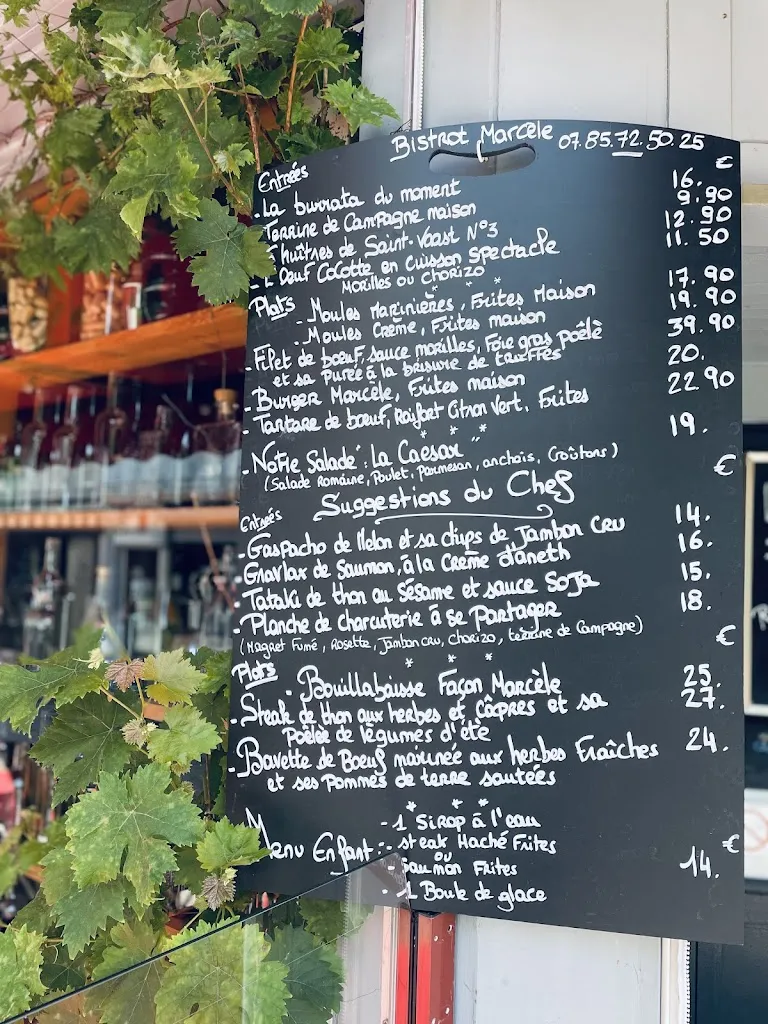 Bistrot Marcèle 07.85.72.50.25
Entrées €
- La burrata du moment 16.
- Terrine de Campagne maison 9.90
huîtres de Saint-Vaast N°3 12.90
- L'Oeuf Cocotte en cuisson spectacle 11.50
Morilles ou chorizo
Plats - Moules Marinières, Frites Maison 17.90
- Moules Crème, Frites maison 19.90
- Filet de boeuf, sauce morilles, Foie gras poêlé 39.90
et sa Purée à la brisure de truffes
- Burger Marcèle, Frites maison 20.
- Tartare de boeuf, Raifort Citron Vert, Frites 22.90
* * *
- Notre Salade : La Caesar " 19.
(Salade Romaine, Poulet, Parmesan, anchois, Croûtons)
Suggestions du Chef €
Entrées
- Gaspacho de Melon et sa chips de Jambon Cru 14.
- Gravlax de Saumon, à la Crème d'aneth 16.
- Tataki de thon au Sésame et sauce Soja 15.
- Planche de charcuterie à se Partager 18.
(Magret Fumé, Rosette, Jambon cru, chorizo, terrine de Campagne)
* * * €
Plats
- Bouillabaisse Façon Marcèle 25.
- Steak de thon aux herbes et câpres et sa 27.
Poêlée de légumes d'été
- Bavette de Boeuf marinée aux herbes Fraîches 24.
et ses Pommes de terre sautées
* * *
Menu Enfant : - 1 Sirop à l'eau
- steak Haché Frites
ou
- Saumon Frites
- 1 Boule de glace
€
14.